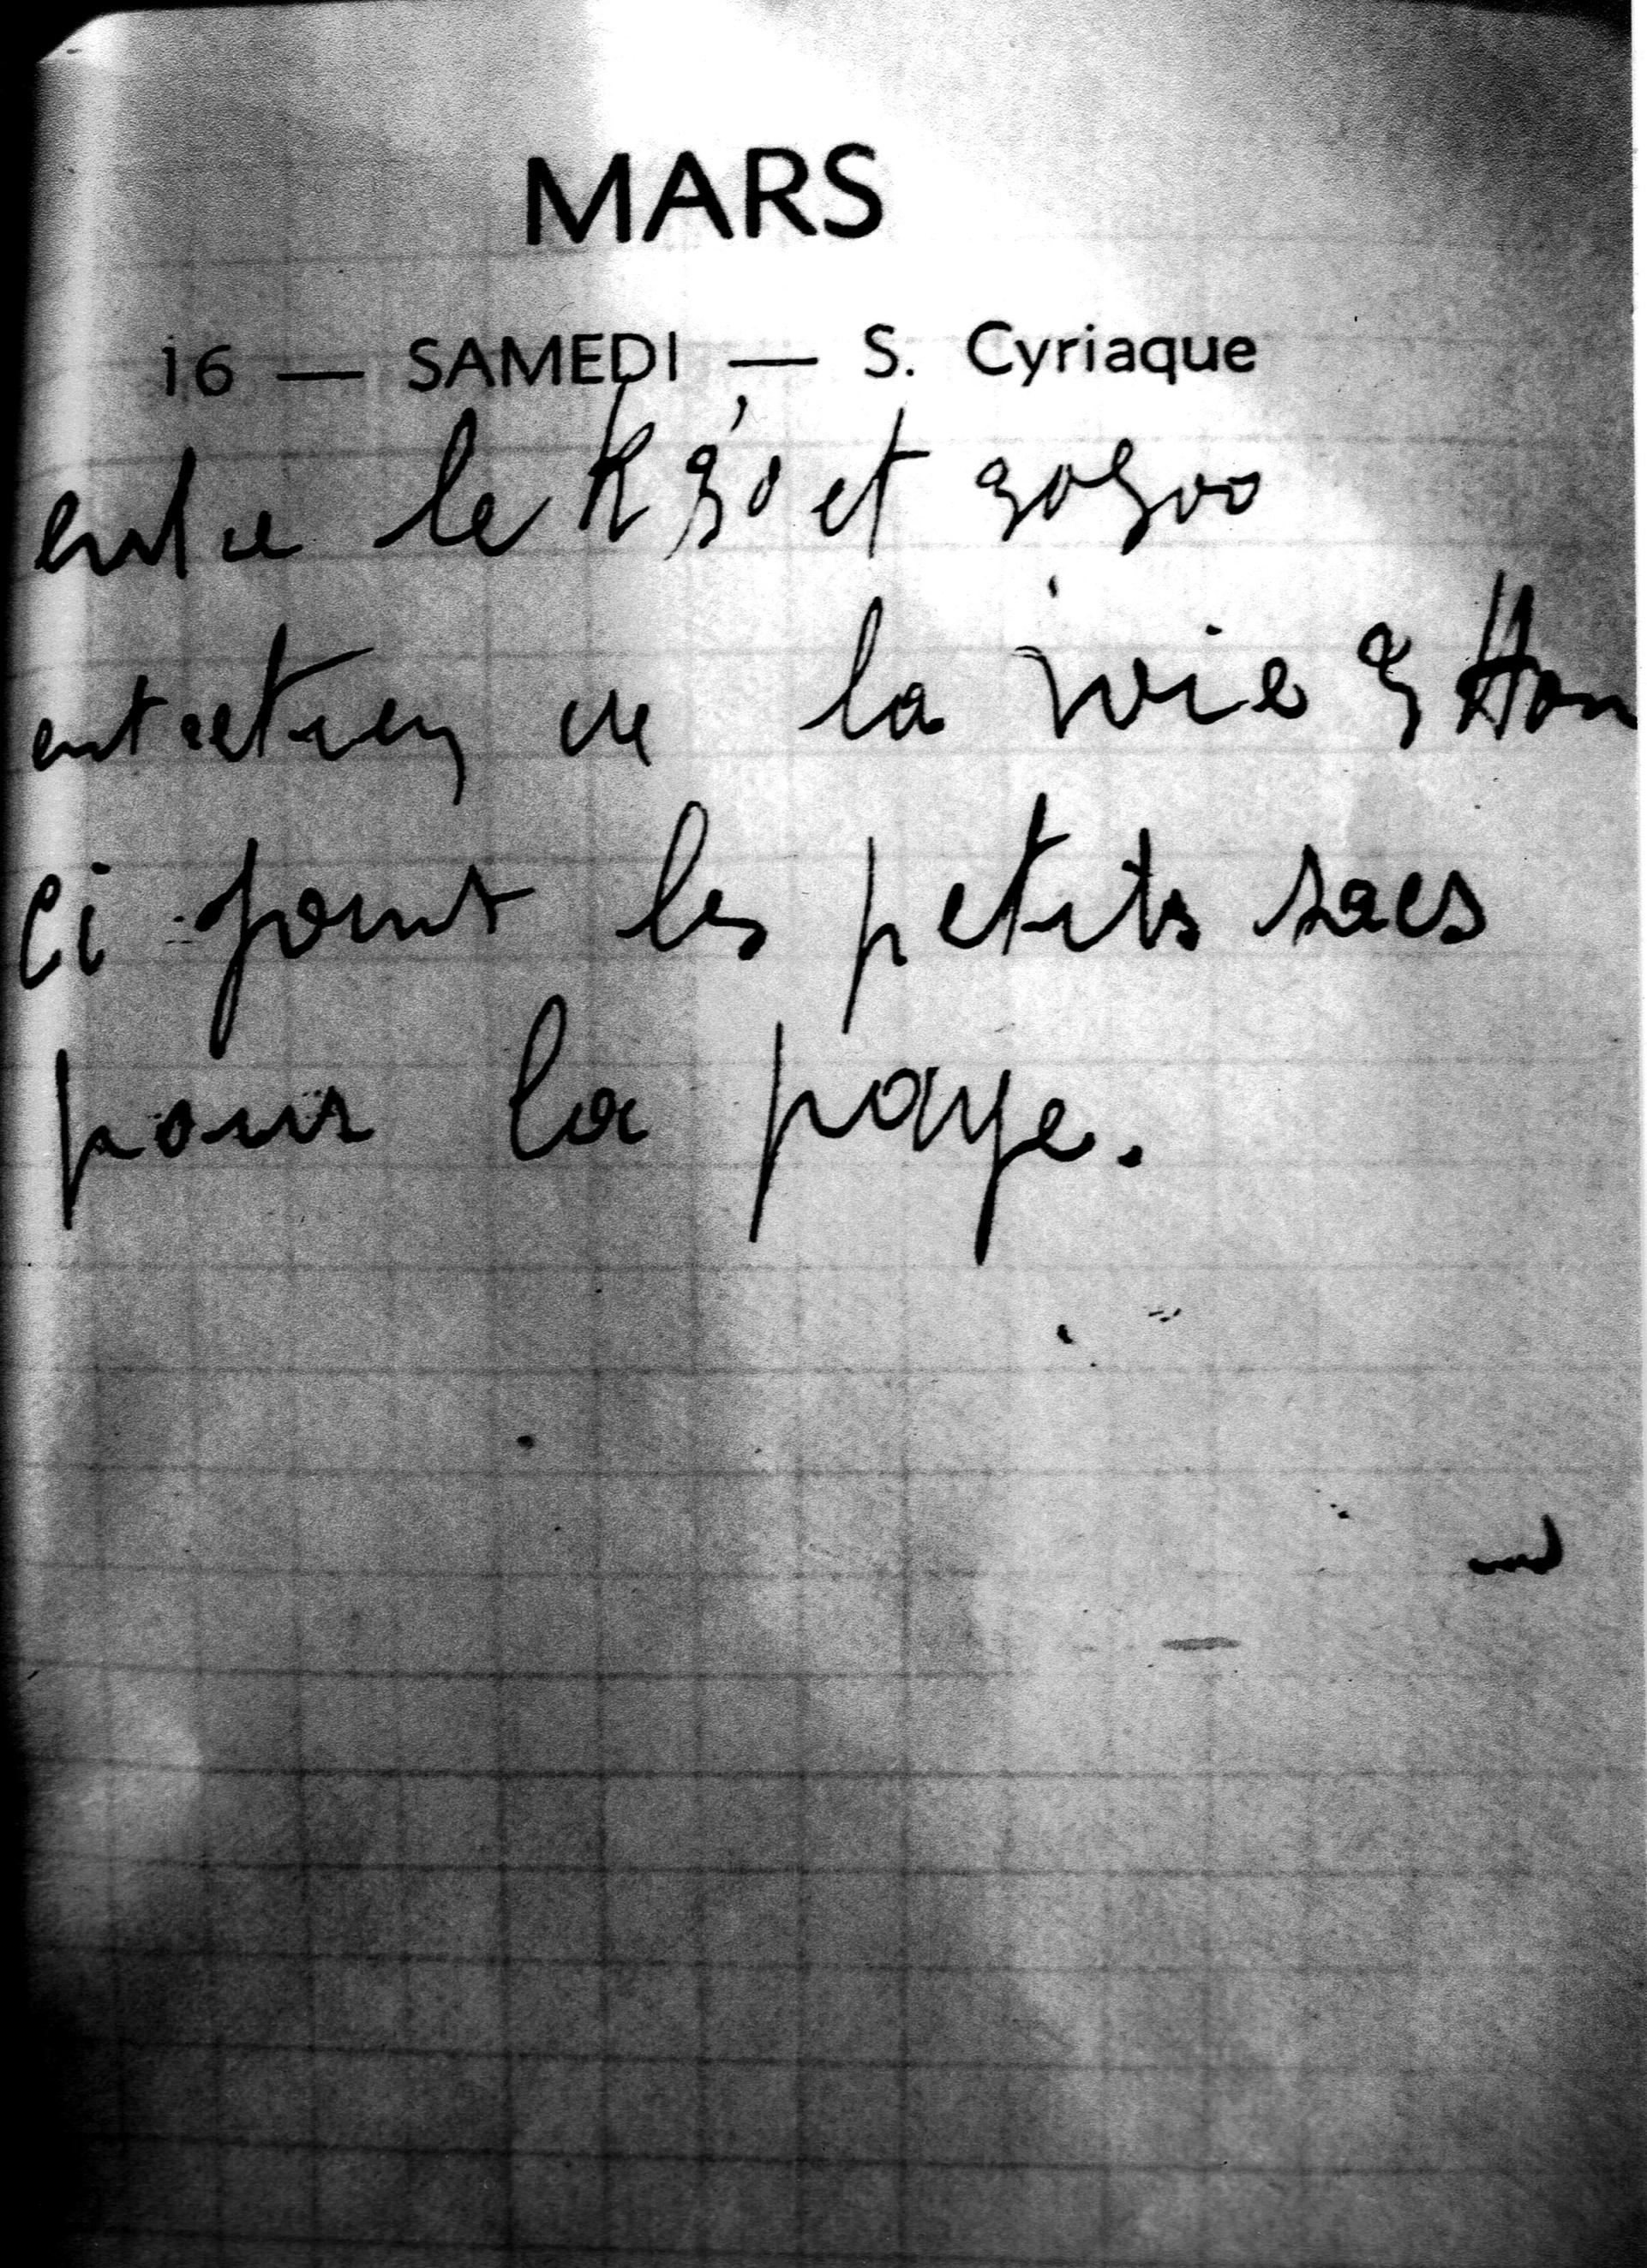 MARS
16 — SAMEDI — S. Cyriaque
entre le K 30 et 30300
entretien de la voie 3 Hom
Ci joint les petits sacs
pour la paye.